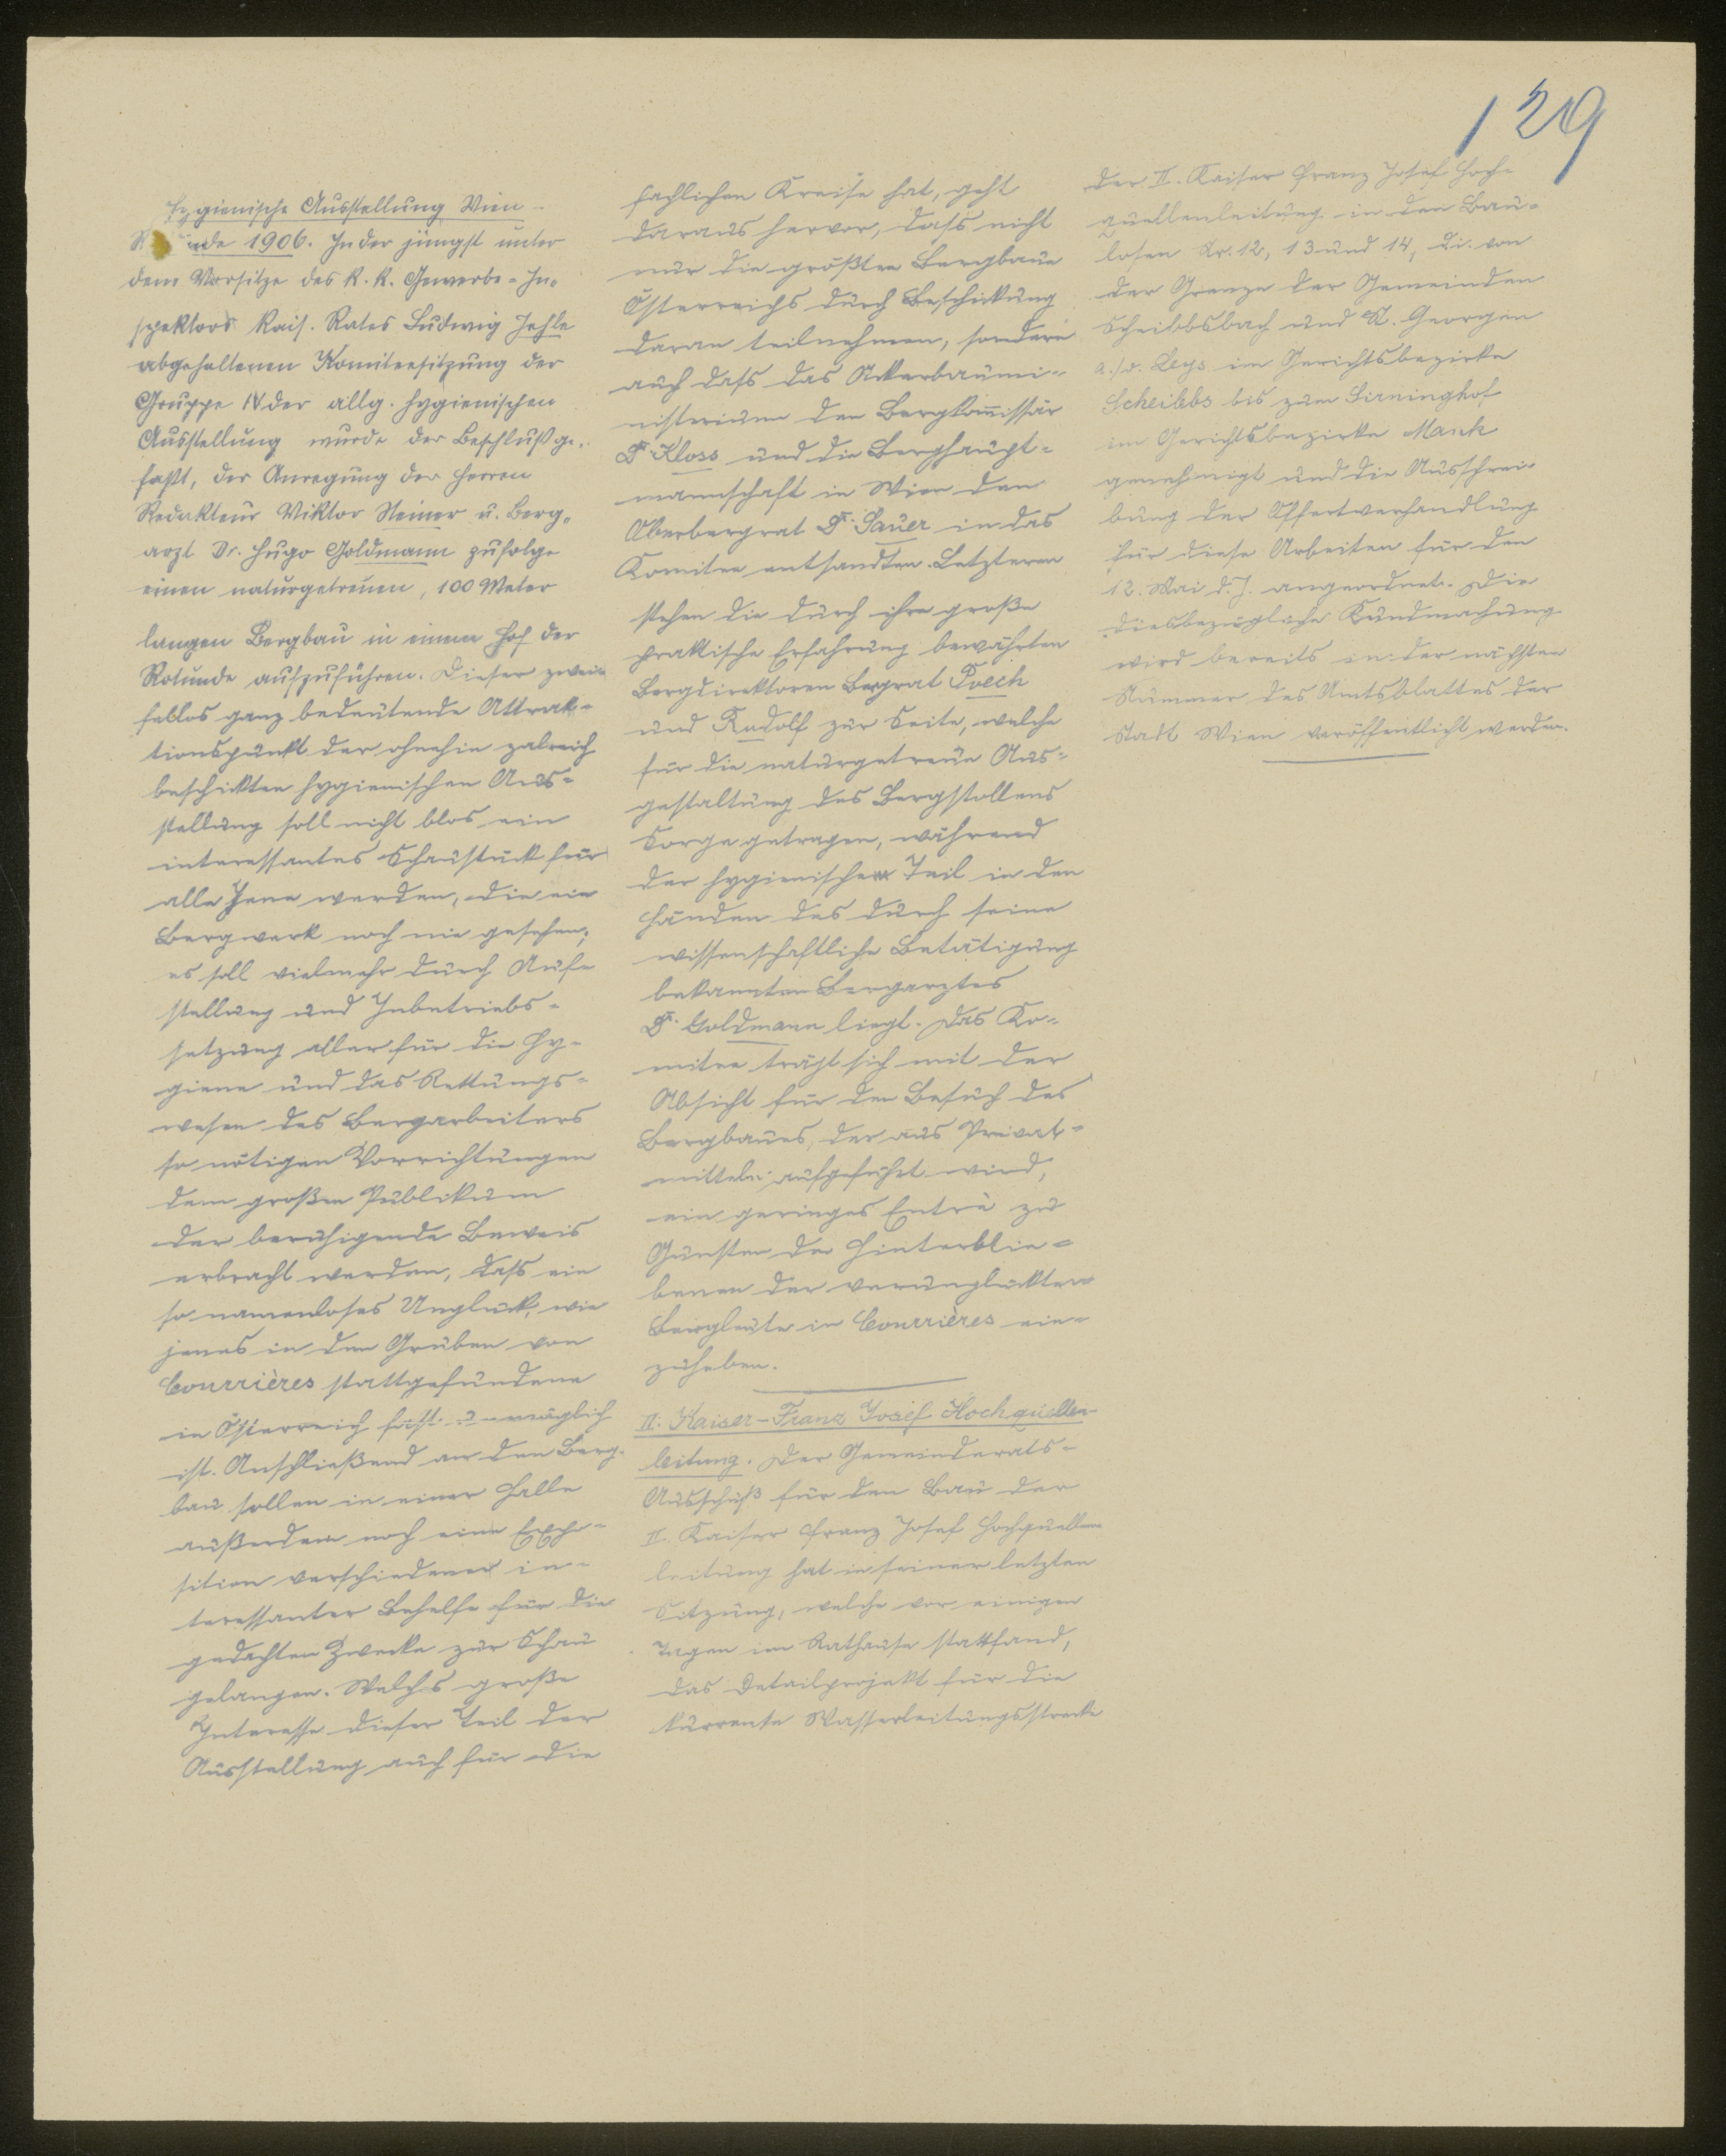 129
Hygienische Ausstellung Wien-
Rotunde 1906. In der jüngst unter
dem Vorsitze des k. k. Gewerbe-In-
spektors kais. Rates Ludwig Jehle
abgehaltenen Komiteesitzung der
Gruppe IV der allg. hygienischen
Ausstellung wurde der Beschluß ge-
faßt, der Anregung der Herren
Redakteur Viktor Steiner u. Berg-
arzt Dr. Hugo Goldmann zufolge
einen naturgetreuen, 100 Meter
langen Bergbau in einem Hof der
Rotunde aufzuführen. Dieser zwei-
fellos ganz bedeutende Attrak-
tionspunkt der ohnehin zalreich
beschickten hygienischen Aus-
stellung soll nicht blos ein
interessantes Schaustück für
alle Jene werden, die ein
Bergwerk noch nie gesehen;
es soll vielmehr durch Auf-
stellung und Inbetriebs-
setzung aller für die Hy-
giene und das Rettungs-
wesen des Bergarbeiters
so nötigen Vorrichtungen
dem großen Publikum
der beruhigende Beweis
erbracht werden, daß ein
so namenloses Unglück, wie
jenes in den Gruben von
Courrières stattgefundene
in Österreich fast unmöglich
ist. Anschließend an den Berg-
bau sollen in einer Halle
außerdem noch eine Expo-
sition verschiedener in-
teressanter Behelfe für die
gedachten Zwecke zur Schau
gelangen. Welches große
Interesse dieser Teil der
Ausstellung auch für die
fachlichen Kreise hat, geht
daraus hervor, dass nicht
nur die größten Bergbaue
Österreichs durch Beschickung
daran teilnehmen, sondern
auch dass das Ackerbaumi-
nisterium den Bergkommissär
Dr. Kloss und die Berghaupt-
mannschaft in Wien den
Oberbergrat Dr. Sauer in das
Komitee entsandten. Letzteren
stehen die durch ihre große
praktische Erfahrung bewährten
Bergdirektoren Bergrat Poech
und Rudolf zur Seite, welche
für die naturgetreue Aus-
gestaltung des Bergstollens
Sorge getragen, während
der hygienische Teil in den
Händen des durch seine
wissenschaftliche Betätigung
bekannten Bergarztes
Dr. Goldmann liegt. Das Ko-
mitee trägt sich mit der
Absicht für den Besuch des
Bergbaues, der aus Privat-
mitteln aufgeführt wird,
ein geringes Entré zu
Gunsten der Hinterblie-
benen der verunglückten
Bergleute in Courrières ein-
zuheben.
II. Kaiser-Franz Josef Hochquellen-
leitung. Der Gemeinderats-
Ausschuß für den Bau der
II. Kaiser Franz Josef Hochquellen-
leitung hat in seiner letzten
Sitzung, welche vor einigen
Tagen im Rathause stattfand,
das Detailprojekt für die
kurrente Wasserleitungsstrecke
der II. Kaiser Franz Josef Hoch-
quellenleitung in den Bau-
losen Nr. 12, 13 und 14, d.i. von
der Grenze der Gemeinden
Scheibbsbach und St. Georgen
a./d. Leys im Gerichtsbezirke
Scheibbs bis zum Sirninghof
im Gerichtsbezirke Mank
genehmigt und die Ausschrei-
bung der Offertverhandlung
für diese Arbeiten für den
12. Mai d. J. angeordnet. Die
diesbezügliche Kundmachung
wird bereits in der nächsten
Nummer des Amtsblattes der
Stadt Wien veröffentlicht werden.